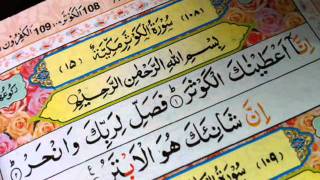 108 الكوثر 109 الكفرون
(١٠٨) سُوْرَةُ الْكَوْثَرِ مَكِّيَّةٌ (١٥)
بِسْمِ اللّٰهِ الرَّحْمٰنِ الرَّحِيْمِ
اِنَّاۤ اَعْطَيْنٰكَ الْكَوْثَرَ ۱ فَصَلِّ لِرَبِّكَ وَانْحَرْ ۲
اِنَّ شَانِئَكَ هُوَ الْاَبْتَرُ
(١٠٩) سُوْرَةُ